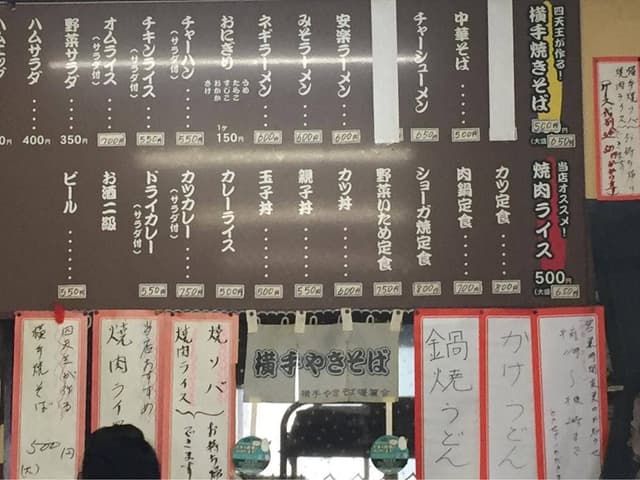 四天王が作る!
横手焼きそば
500円
(大盛)650円
中華そば・・・・・500円
チャーシューメン・・650円
安楽ラーメン・・・・600円
みそラーメン・・・・600円
ネギラーメン・・・・600円
おにぎめ
うめ
たらこ
すじこ
おかか
さけ
1ヶ
150円
チャーハン・・・・550円
(サラダ付)
チキンライス・・・550円
(サラダ付)
オムライス・・・・700円
(サラダ付)
野菜サラダ・・・・350円
ハムサラダ・・・・400円
当店オススメ!
焼肉ライス
500円
(大盛)650円
カツ定食・・・・・800円
肉鍋定食・・・・・700円
ショーガ焼定食・・800円
野菜いため定食・・750円
カツ丼・・・・・・600円
親子丼・・・・・・550円
玉子丼・・・・・・500円
カレーライス・・・500円
カツカレー・・・・750円
(サラダ付)
ドライカレー・・・550円
(サラダ付)
お酒二級
ビール・・・・・・550円
かけうどん
鍋焼うどん
横手やきそば
横手やきそば暖簾会
焼ソバ
焼肉ライス
お持ち帰り
できます
当店おすすめ
焼肉ライ
四天王が作る
横手焼そば
500円
(大)